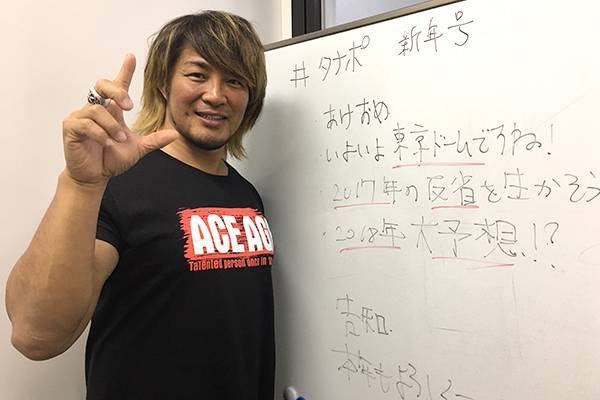 #タナポ 新年号
・あけおめ
・いよいよ東京ドームですね!
・2017年の反省を生かそう
・2018年大予想!?
告知
本年もよろしくー
ACE AG
Talented person once in